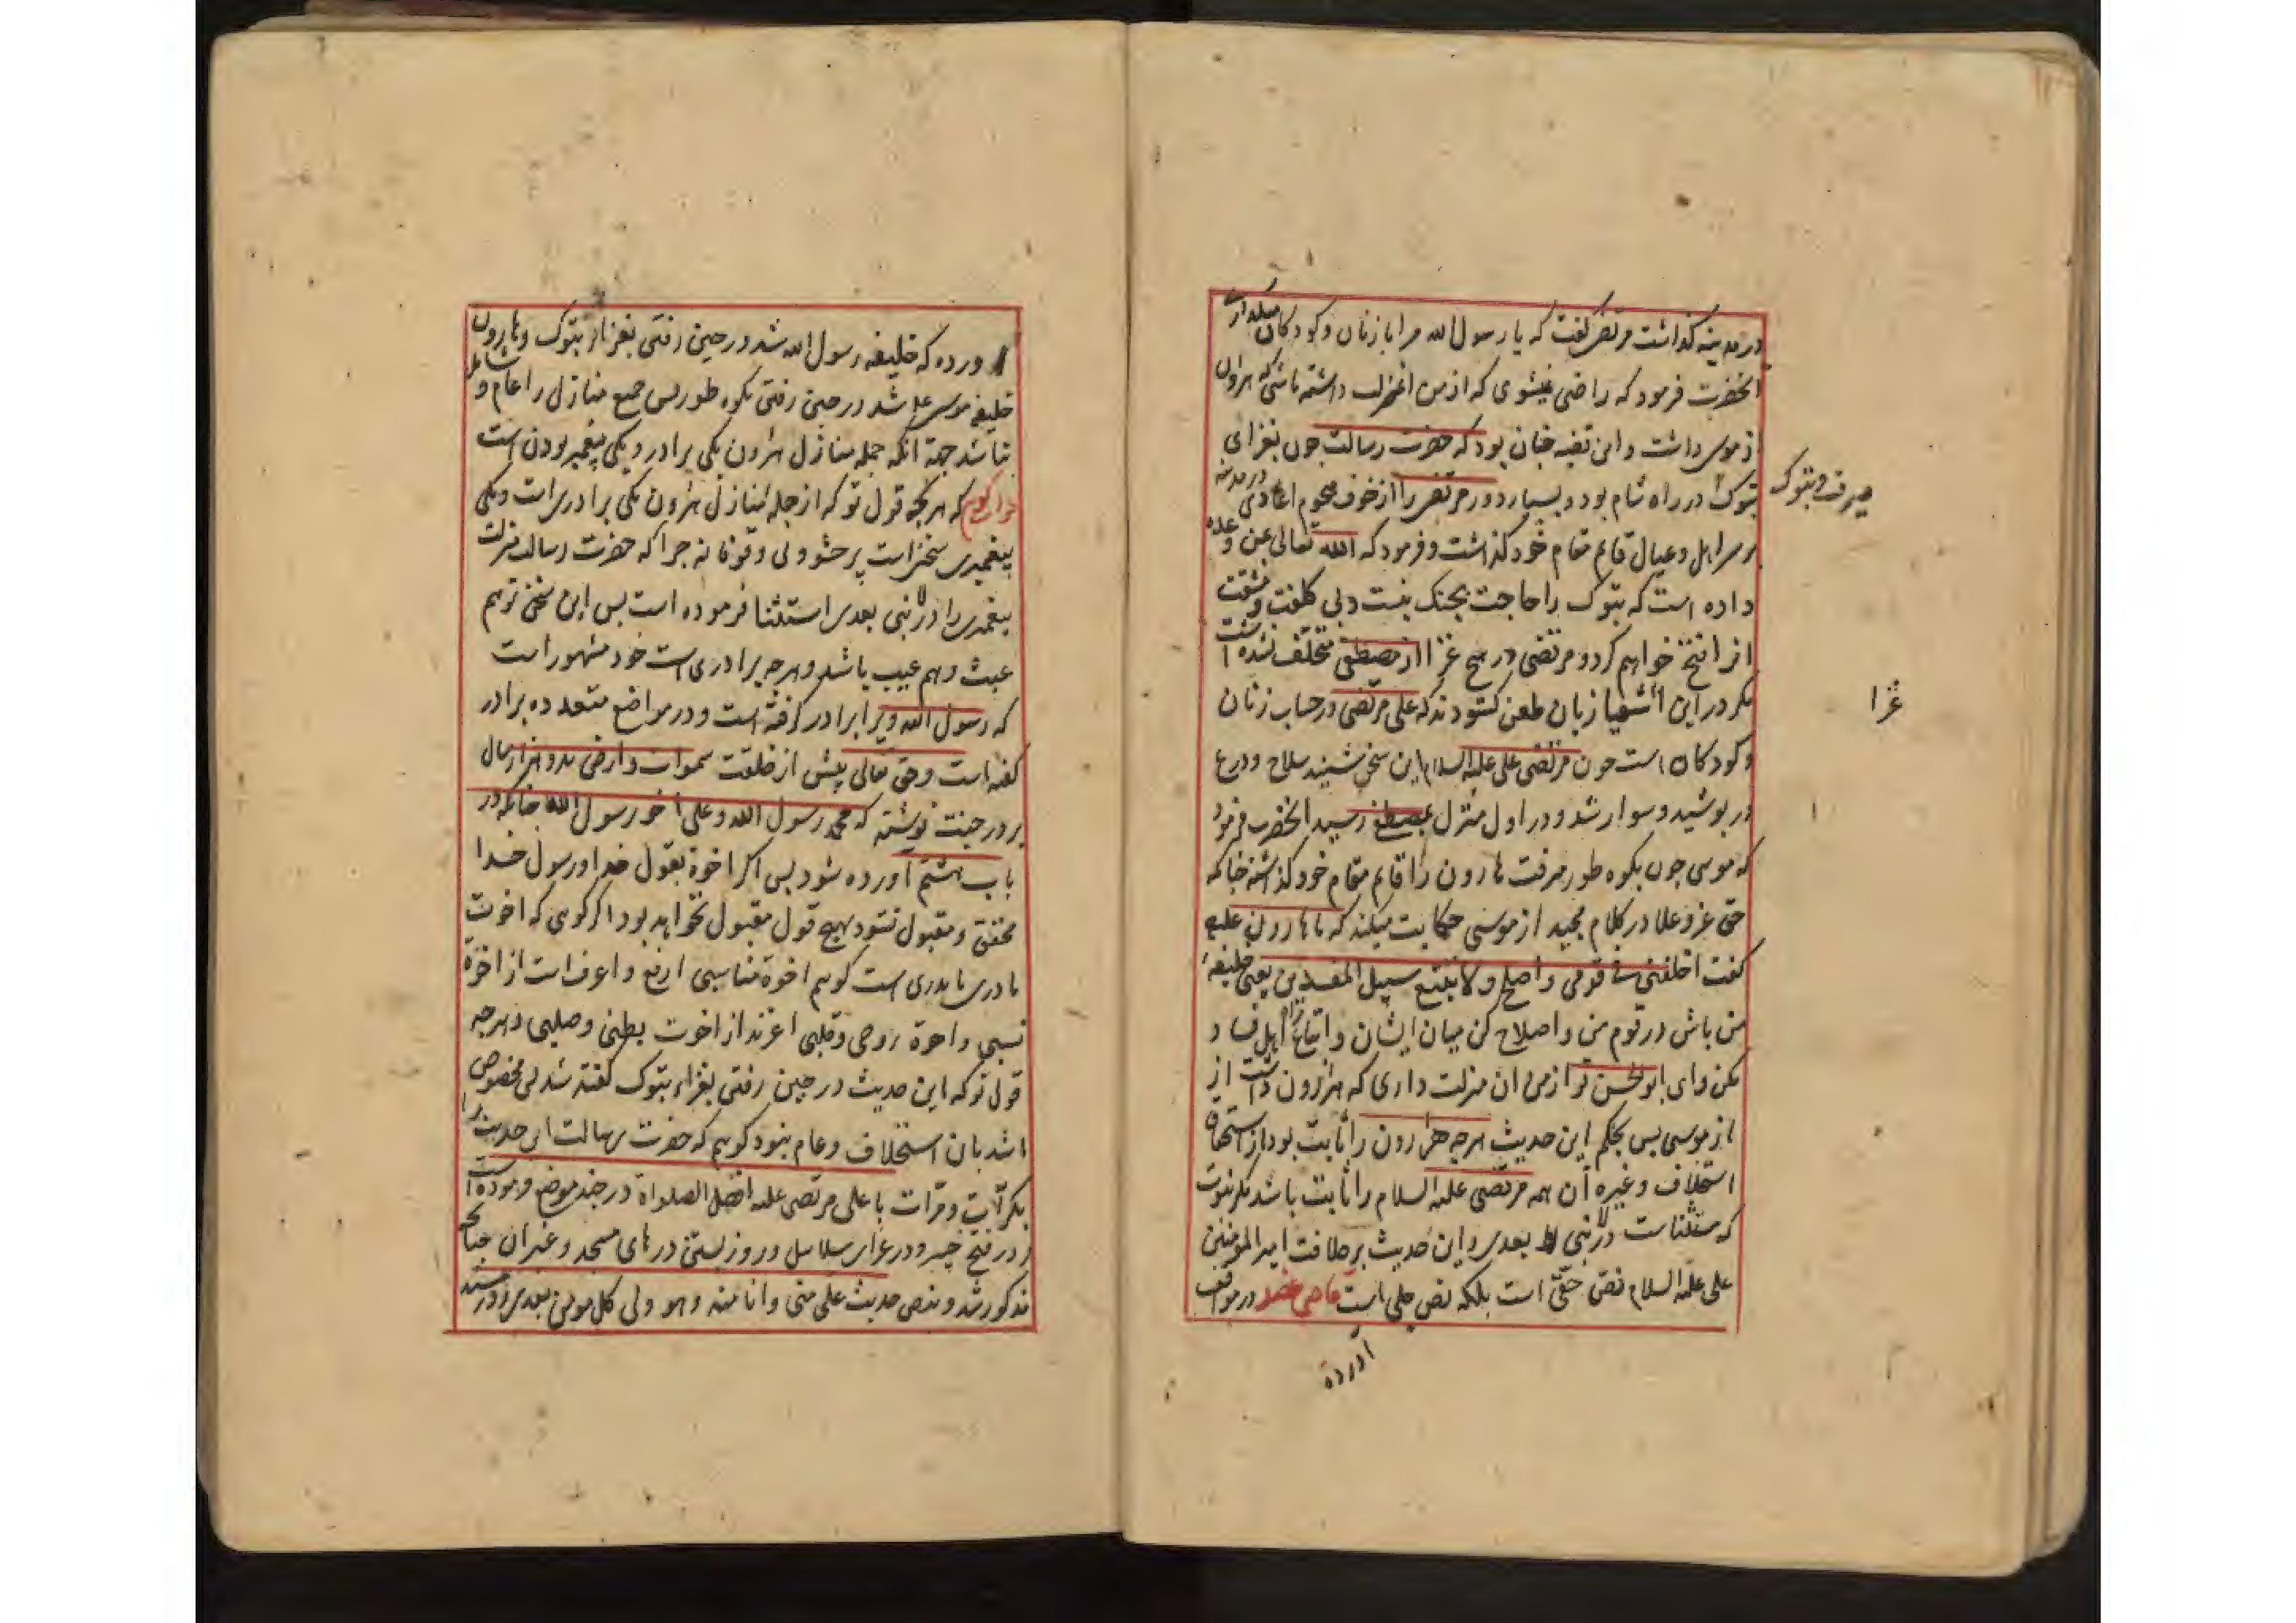 در مدینه گذاشت مرتضی گفت که یا رسول الله مرا با زنان و کودکان میگذاری
انحضرت فرمود که راضی نمیشوی که از من آن منزلت داشته باشی که هرون
از موسی داشت و این قضیه چنان بود که حضرت رسالت چون بغزای
تبوک در راه شام بود و بسیار دور مرتضی را از خوف هجوم اعادی در مدینه
بر سر اهل و عیال قایم مقام خود گذاشت و فرمود که الله تعالی مرا وعده
داده است که تبوک را حاجت بجنک نیست و بی کلفت و مشقت
انرا فتح خواهم کرد و مرتضی در هیچ غزا از مصطفی متخلف نشده است
مکر در این اشقیا زبان طعن کشودند که علی مرتضی در حساب زنان
و کودکان است چون مرتضی علی علیه السلام این سخن شنید سلاح و درع
در پوشید و سوار شد و در اول منزل بمصطفی رسید انحضرت فرمود
که موسی چون بکوه طور میرفت هارون را قایم مقام خود گذاشته چنانکه
حق عز و علا در کلام مجید از موسی حکایت میکند که با هارون علیه
گفت اخلفنی فی قومی و اصلح ولا تتبع سبیل المفسدین یعنی خلیفهٔ
من باش در قوم من و اصلاح کن میان ایشان و اتباع راه اهل فساد
مکن و ای ابوالحسن تو از من ان منزلت داری که هرون داشت از
از موسی پس بحکم این حدیث هرچه هارون را ثابت بود از استحقاق
استخلاف و غیره آن همه مرتضی علیه السلام را ثابت باشد مکر نبوت
که مستثناست در لا نبی بعدی و این حدیث بر خلافت امیر المؤمنین
علی علیه السلام نص خفی است بلکه نص جلی است قاضی عضد در مواقف
آورده
میرفت و تبوک
غزا
آورده که خلیفه رسول الله شد در حین رفتن بغزاء تبوک و هارون
خلیفه موسی علیه شد در حین رفتن بکوه طور پس جمیع منازل را عام و شامل
نباشد جهة انکه جمله منازل هرون یکی برادر و یکی پیغمبر بودن است
جواب گویم که هرچه قول تو که از جمله منازل هرون یکی برادریست و یکی
پیغمبری سخنی است پر حشو و بی وقوفانه چرا که حضرت رسالت منزلت
پیغمبری را در لا نبی بعدی استثنا فرموده است پس این سخن تو هم
عبث و هم عیب باشد و هرچه برادری است خود مشهور است
که رسول الله ویرا برادر گرفته است و در مواضع متعدده برادر
گفته است و حق تعالی پیش از خلقت سموات و ارض بدو هزار سال
بر در جنت نوشته که محمد رسول الله و علی اخو رسول الله چنانکه در
باب هشتم آورده شود پس اکر اخوة بقول خدا و رسول خدا
محقق و مقبول نشود هیچ قول مقبول نخواهد بود اکر کوی که اخوت
مادری یا پدری است کویم اخوة مناسبی ارفع و اعرف است از اخوة
نسبی و اخوة روحی و قلبی اعزند از اخوت بطنی و صلبی و هرچه
قول تو که این حدیث در حین رفتن بغزاء تبوک کفته شد پس مخصوص
باشد بان استخلاف و عام نبود کویم که حضرت رسالت این حدیث را
بکرّات و مرّات با علی مرتضی علیه افضل الصلواة در چند موضع فرموده است
در فتح خیبر و در غزای سلاسل و روز بستن درهای مسجد و غیر آن چنانکه
مذکور شد و بنص حدیث علی منی و انا منه و هو ولی کل مومن بعدی